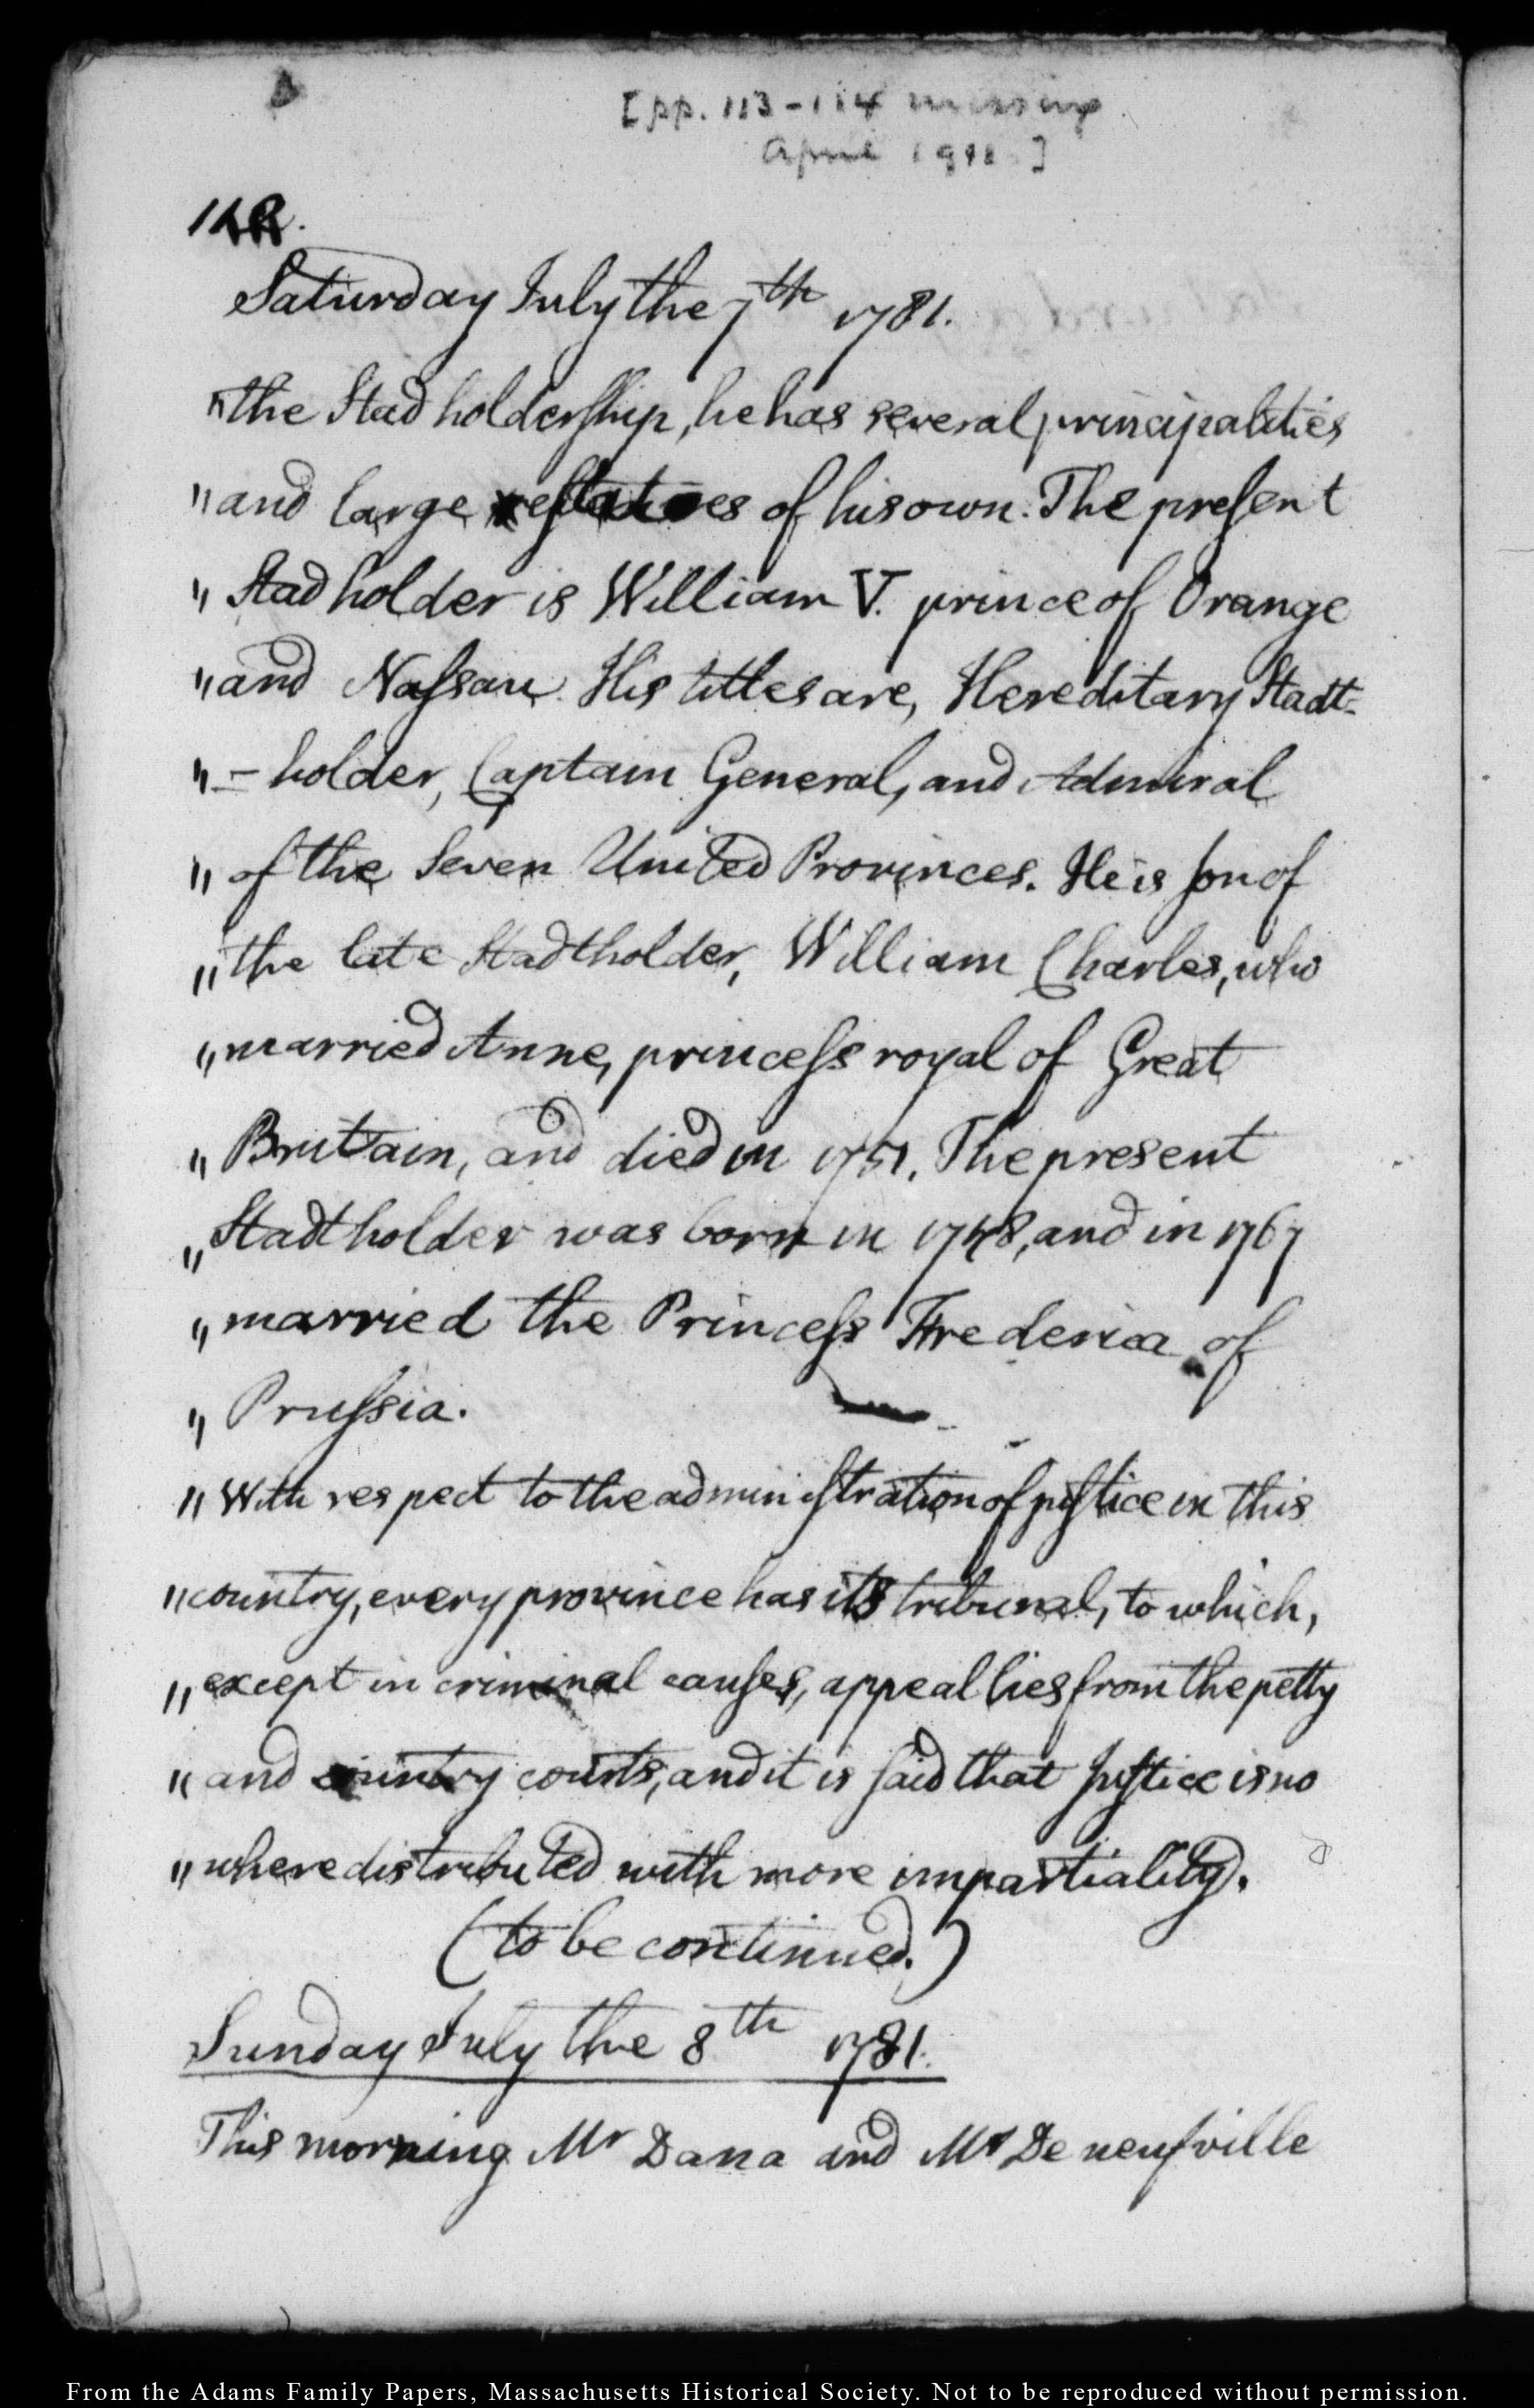 [pp. 113-114 missing
April 19 ]
Saturday July the 7th 1781.
"the Stad holdership, he has several principalities
"and large estates of his own. The present
"Stad holder is William V. prince of Orange
"and Nassau. His titles are, Hereditary Stadt-
"-holder, Captain General, and Admiral
"of the Seven United Provinces. He is son of
"the late Stadtholder, William Charles, who
"married Anne, princess royal of Great
"Britain, and died in 1751. The present
"Stadtholder was born in 1748, and in 1767
"married the Princess Frederica of
"Prussia.
"With respect to the administration of justice in this
"country, every province has its tribunal, to which,
"except in criminal causes, appeal lies from the petty
"and country courts, and it is said that justice is no
"where distributed with more impartiality.
(to be continued.)
Sunday July the 8th 1781.
This morning Mr Dana and Mr De neufville
From the Adams Family Papers, Massachusetts Historical Society. Not to be reproduced without permission.